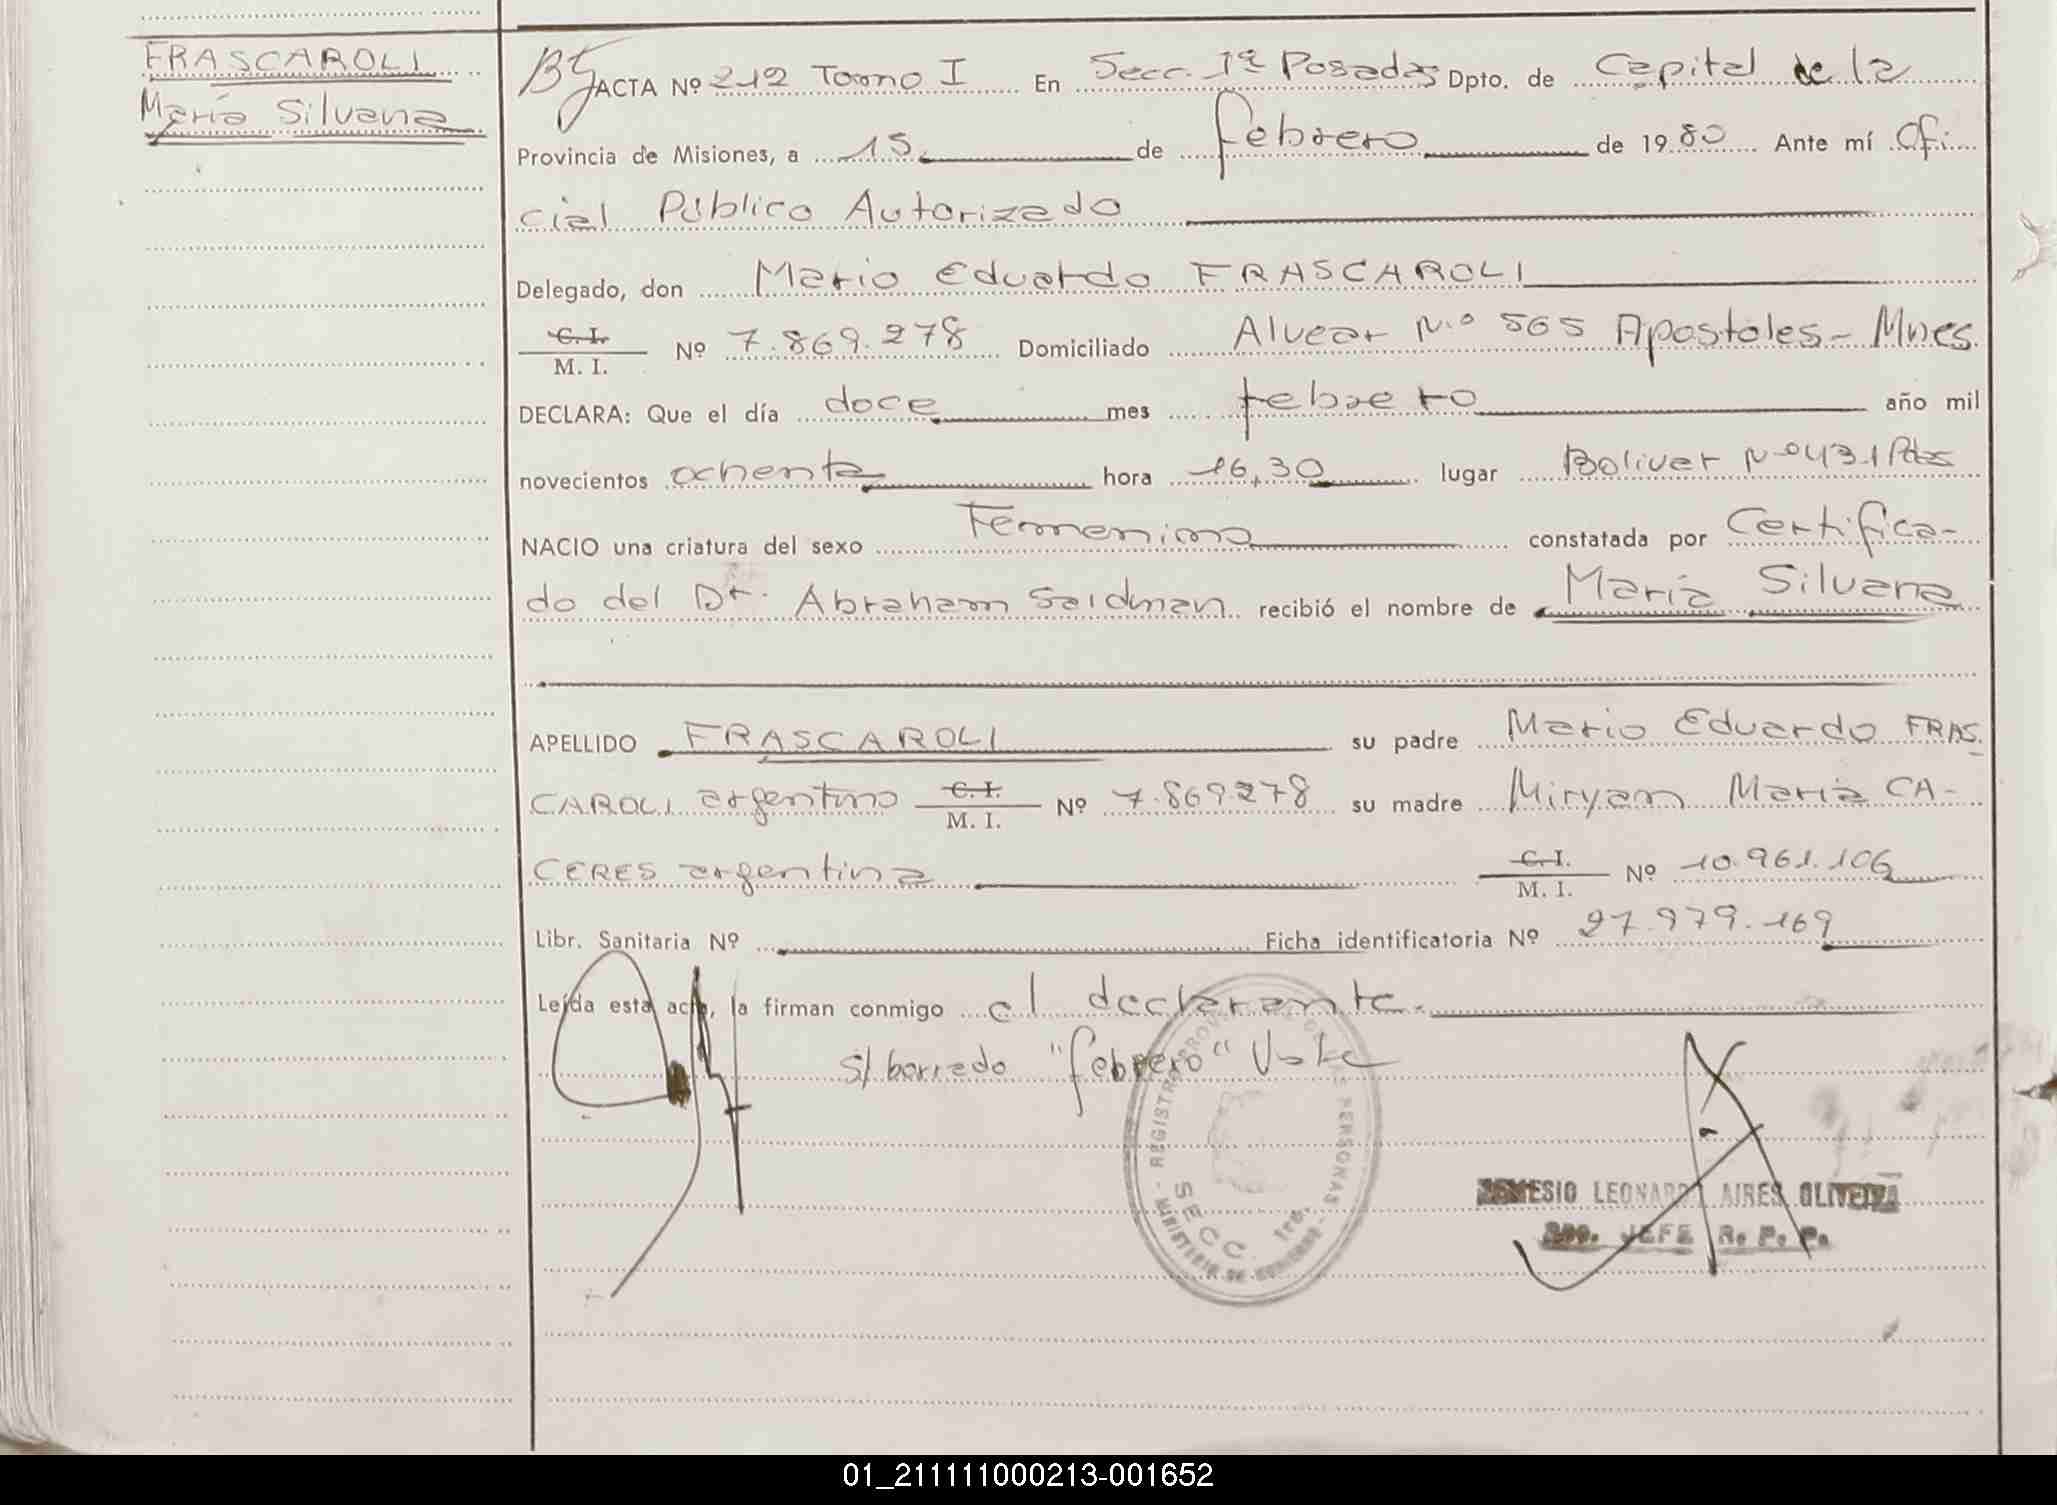 FRASCAROLI
María Silvana
ACTA Nº 212 Tomo I En Secc. 1ª Posadas Dpto. de Capital de la
Provincia de Misiones, a 15 de febrero de 1980 Ante mí Ofi
cial Público Autorizado
Delegado, don Mario Eduardo FRASCAROLI
C. I.
M. I.
Nº 7.869.278 Domiciliado Alvear N.º 565 Apostoles - Mnes.
DECLARA: Que el día doce mes febrero año mil
novecientos ochenta hora 16,30 lugar Bolivar Nº 431 Pdas
NACIO una criatura del sexo Femenino constatada por Certifica-
do del Dr. Abraham Saidman recibió el nombre de María Silvana
APELLIDO FRASCAROLI su padre Mario Eduardo FRAS.
CAROLI argentino C. I. M. I. Nº 7.869.278 su madre Miryam María CA-
CERES argentina C. I. M. I. Nº 10.961.106
Libr. Sanitaria Nº Ficha identificatoria Nº 27.979.169
Leída esta acta, la firman conmigo el declarante.
S/ borrado "febrero" Vale
REGISTRO PROVINCIAL DE LAS PERSONAS
MINISTERIO DE GOBIERNO
SECC. 1ra.
NEMESIO LEONARDO AIRES OLIVEIRA
JEFE R. P. P.
01_211111000213-001652